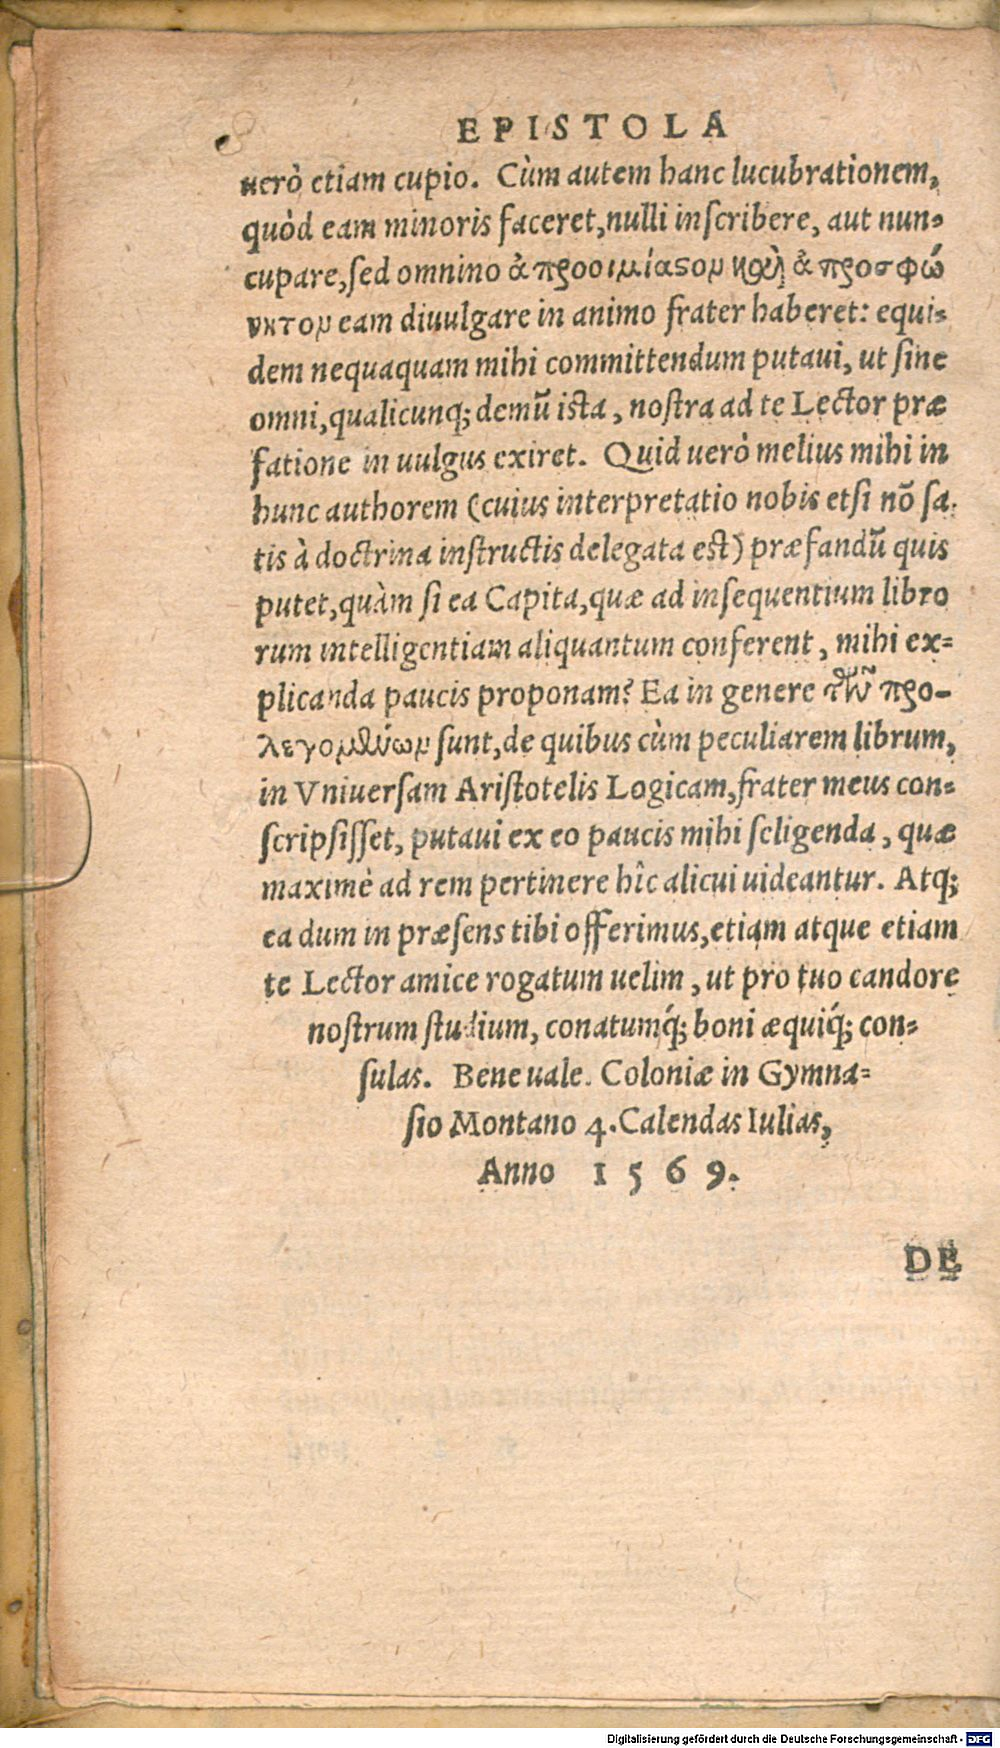 EPISTOLA
uerò etiam cupio. Cùm autem hanc lucubrationem,
quòd eam minoris faceret, nulli inscribere, aut nun-
cupare, sed omnino ἀπροοιμίαςον καὶ ἀπροσφώ
νητον eam diuulgare in animo frater haberet: equi-
dem nequaquam mihi committendum putaui, ut sine
omni, qualicunq; demū ista, nostra ad te Lector præ
fatione in uulgus exiret. Quid uerò melius mihi in
hunc authorem (cuius interpretatio nobis etsi nō sa-
tis à doctrina instructis delegata est) præfandū quis
putet, quàm si ea Capita, quæ ad insequentium libro
rum intelligentiam aliquantum conferent, mihi ex-
plicanda paucis proponam? Ea in genere τῶν προ-
λεγομένων sunt, de quibus cùm peculiarem librum,
in Vniuersam Aristotelis Logicam, frater meus con-
scripsisset, putaui ex eo paucis mihi seligenda, quæ
maximè ad rem pertinere hîc alicui uideantur. Atq;
ea dum in præsens tibi offerimus, etiam atque etiam
te Lector amice rogatum uelim, ut pro tuo candore
nostrum studium, conatumq́; boni æquiq́; con-
sulas. Bene uale. Coloniæ in Gymna-
sio Montano 4. Calendas Iulias,
Anno 1569.
DE
Digitalisierung gefördert durch die Deutsche Forschungsgemeinschaft - DFG